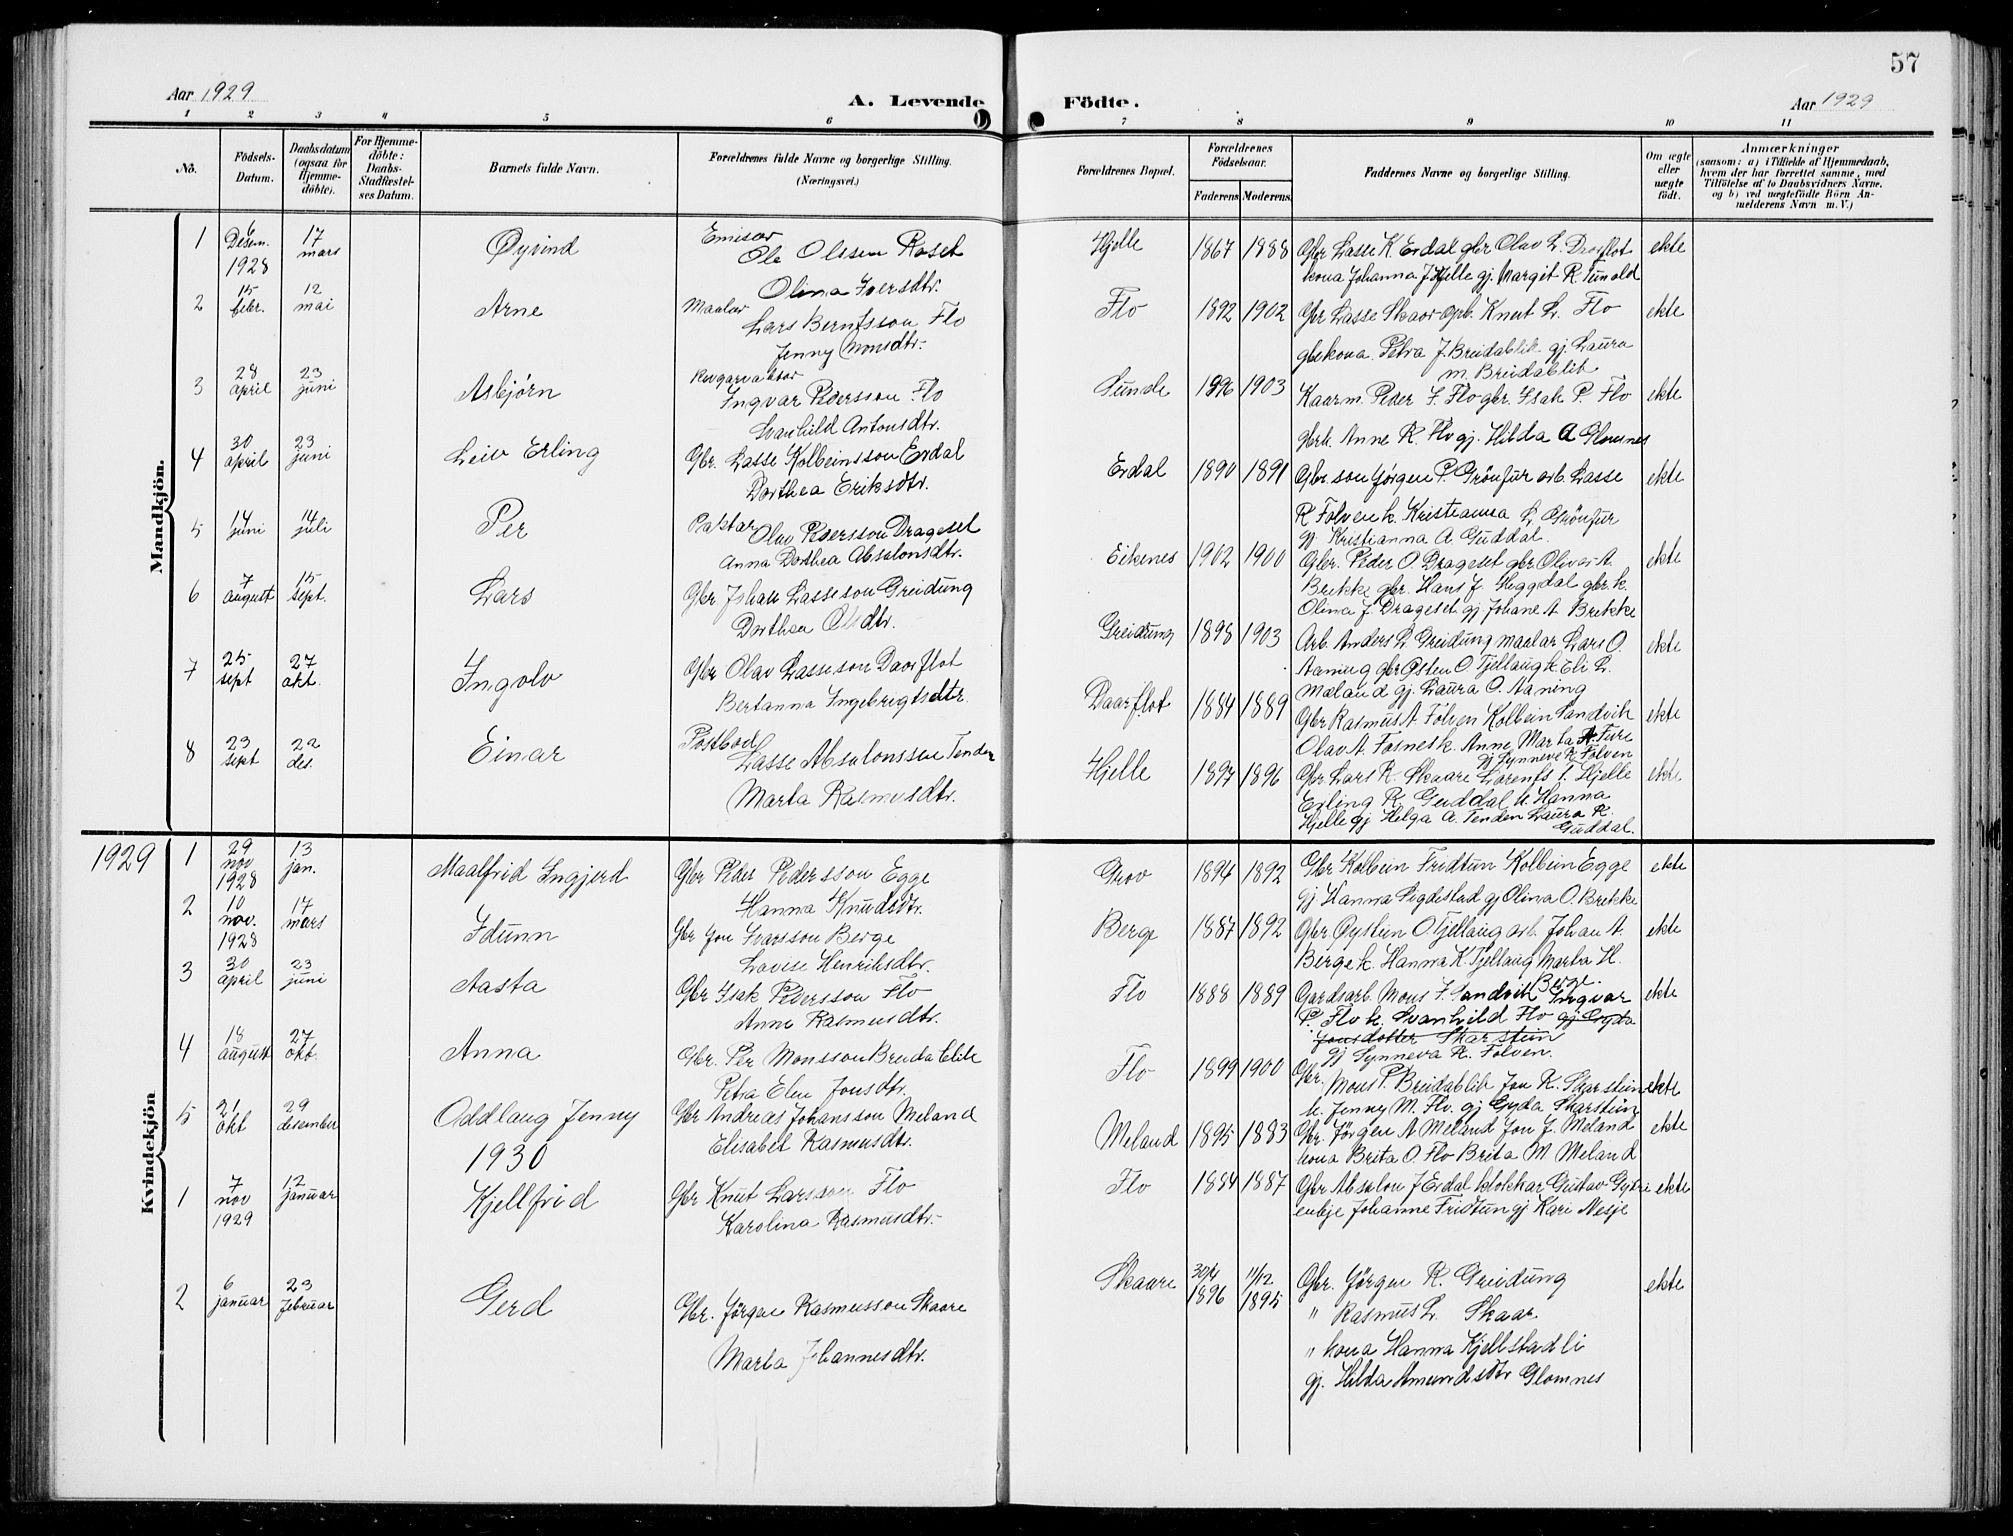 57
Aar 1929
A. Levende Födte.
Aar 1929
1 2 3 4 5 6 7 8 9 10 11
No.
Födsels-Datum.
Daabsdatum (ogsaa for Hjemme-döbte).
For Hjemme-döbte: Daabs-Stadfæstel-ses Datum.
Barnets fulde Navn.
Forældrenes fulde Navne og borgerlige Stilling.
(Næringsvei.)
Forældrenes Bopæl.
Forældrenes Födselsaar.
Faderens Moderens
Faddernes Navne og borgerlige Stilling.
Om ægte eller uægte födt.
Anmærkninger
(saasom: a) i Tilfælde af Hjemmedaab,
hvem der har forrettet samme, med
Tilföielse af to Daabsvidners Navne.
og b) ved uægtefödte Börn An-
melderens Navn m. V.)
Mandkjön.
1 6 Desem. 1928 17 mars Øyvind Emisær Ole Olssen Roset Olina Iversdtr. Hjelle 1867 1888 Gbr Lasse K. Erdal gbr Olav L. Daarflot
kona Johanna J Hjelle gj. Margit R. Tunold ekte
2 15 febr. 12 mai Arne Maalar Lars Berntsson Flo Jenny Monsdtr. Flo 1892 1902 Gbr Lasse Skaar gbr. Knut L. Flo
gbrkona Petra J. Breidablik gj. Laura
M. Breidablik ekte
3 28 april 23 juni Asbjørn Ingvar Pedersson Flo Svanhild Antonsdtr. Sunde 1896 1903 Kaarm. Peder I. Flo gbr. Isak P. Flo
gbrk. Anne R. Flo gj. Hilda A Glomnes ekte
4 30 april 23 juni Leiv Erling Gbr. Lasse Kolbeinsson Erdal Dorthea Eriksdtr. Erdal 1890 1891 Gbr. son Jørgen P. Grönfur arb. Lasse
R Folven k. Kristianna L Grönfur
gj Kristianna A. Guddal. ekte
5 14 juni 14 juli Per Paktar Olav Pedersson Drageset Anna Dorthea Absalonsdtr. Eikenes 1902 1900 Gbr. Peder O. Drageset gbr. Oliver A.
Brekke gbr. Hans J. Heggdal gbr. k.
Olina J. Drageset gj Johane A. Brekke ekte
6 7 august 15 sept. Lars Gbr. Johan Lasseson Greidung Dorthea Olsdtr. Greidung 1898 1903 Arb. Anders L Greidung maalar Lars O.
Aaning gbr Østen O Tjellaug k. Eli L.
Meland gj. Laura O. Aaning ekte
7 25 sept 27 okt. Ingolv Gbr Olav Lasseson Daarflot Bertanna Ingebrigtsdtr. Daarflot 1884 1889 Gbr Rasmus A. Folven Kolbein Sandvik
Olav A. Fosnes k. Anne Marta A. Fure
gj Synneve R. Folven ekte
8 23 sept 22 des. Einar Postbod Lasse Absalonsson Tenden Marta Rasmusdtr. Hjelle 1897 1896 Gbr Lars R. Skaare Lorents I. Hjelle
Erling R. Guddal k. Hanna
Hjelle gj Helga A. Tenden Laura R.
Guddal. ekte
Kvindekjön
1929
1 29 nov 1928 13 jan. Maalfrid Ingjerd Gbr Peder Pedersson Egge Hanna Knudsdtr. Grov 1894 1892 Gbr Kolbein Fridtun Kolbein Egge
gj Hanna Sigdestad gj Olina O. Brekke ekte
2 10 nov. 1928 17 mars Idunn Gbr Jon Ivarsson Berge Lovise Henriksdtr. Berge 1887 1892 Gbr Øystein O. Tjellaug arb. Johan A.
Berge k. Hanna K. Tjellaug Marta H.
Berge. ekte
3 30 april 23 juni Aasta Gbr Isak Pedersson Flo Anne Rasmusdtr. Flo 1888 1889 Gardsarb. Mons J. Sandvik Ingvar
P. Flo k. Svanhild Flo gj. Gyda
Jonsdotter Skarstein
gj Synneva R. Folven. ekte
4 18 august 27 okt. Anna Gbr. Per Monsson Breidablik Petra Elen Jonsdtr. Flo 1899 1900 Gbr. Mons P. Breidablik Jon K. Skarstein
k. Jenny M. Flo. gj Gyda Skarstein ekte
5 21 okt 29 desember Oddlaug Jenny Gbr Andreas Johansson Meland Elisabet Rasmusdtr. Meland 1895 1883 Gbr. Jörgen A. Meland Jon J. Meland
kona Brita O. Flo Brita M Meland ekte
1930
1 7 nov 1929 12 januar Kjellfrid Gbr Knut Larsson Flo Karolina Rasmusdtr. Flo 1884 1887 Gbr Absalon J Erdal klokkar Gustav Gytri
enkje Johanne Fridtun gj Kari Nesje ekte
2 6 januar 23 februar Gerd Gbr. Jørgen Rasmusson Skaare Marta Johannesdtr. Skaare 30/4 1896 11/12 1895 Gbr. Jörgen R. Greidung
" Rasmus L. Skaar
" kona Hanna Kjellstadli
gj. Hilda Amundsdtr Glomnes ekte